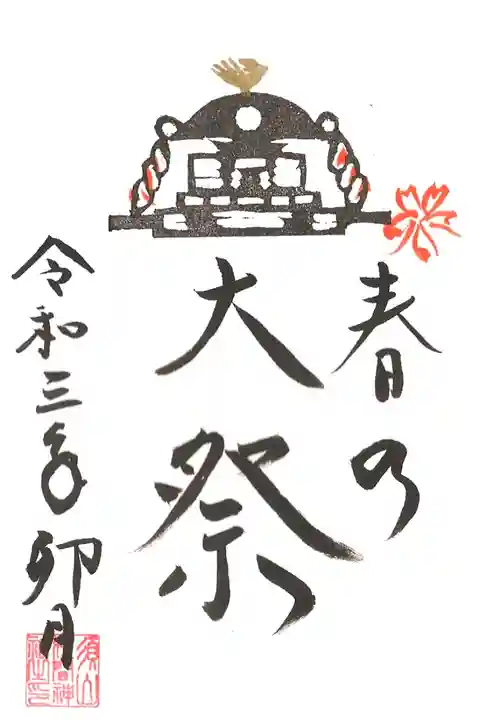 春の
大祭
令和三年卯月